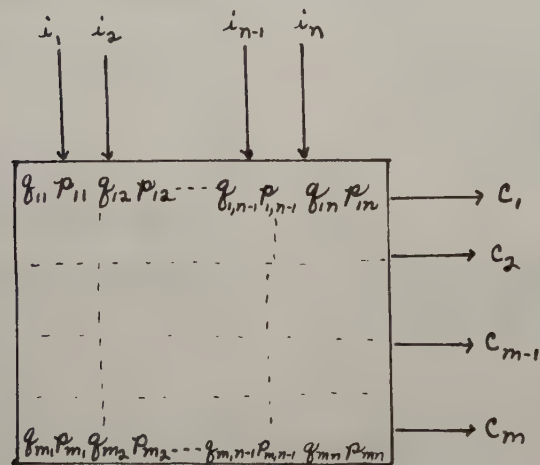 i₁ i₂ iₙ₋₁ iₙ
q₁₁ p₁₁ q₁₂ p₁₂ --- q₁,ₙ₋₁ p₁,ₙ₋₁ q₁ₙ p₁ₙ C₁
C₂
Cₘ₋₁
Cₘ
qₘ₁ pₘ₁ qₘ₂ pₘ₂ --- qₘ,ₙ₋₁ pₘ,ₙ₋₁ qₘₙ pₘₙ